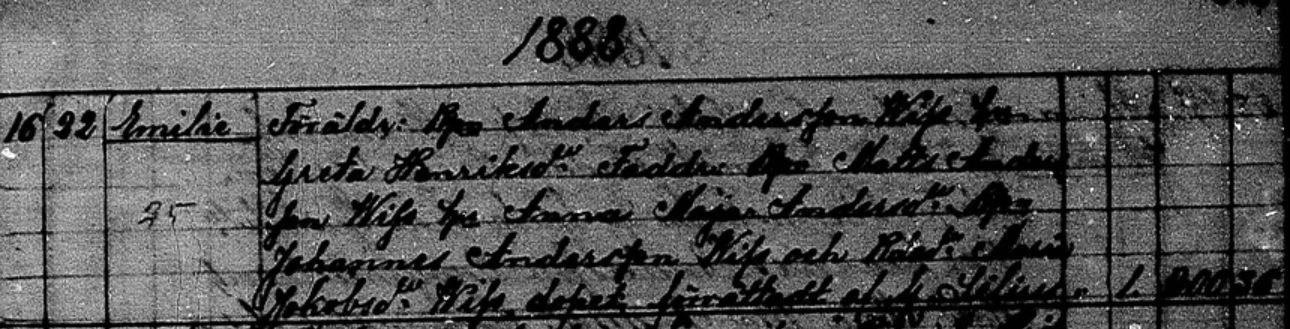 1888.
16 22 Emilie Föräldr: Bpn Anders Andersson Wiss hu
Greta Henriksdr Faddr: Bpn Matts Anders
25 son Wiss hu Anna Maja Andersdr Bpn
Johannes Andersson Wiss och Maria
Jakobsdr Wiss, dopet förrättadt af 1. 36